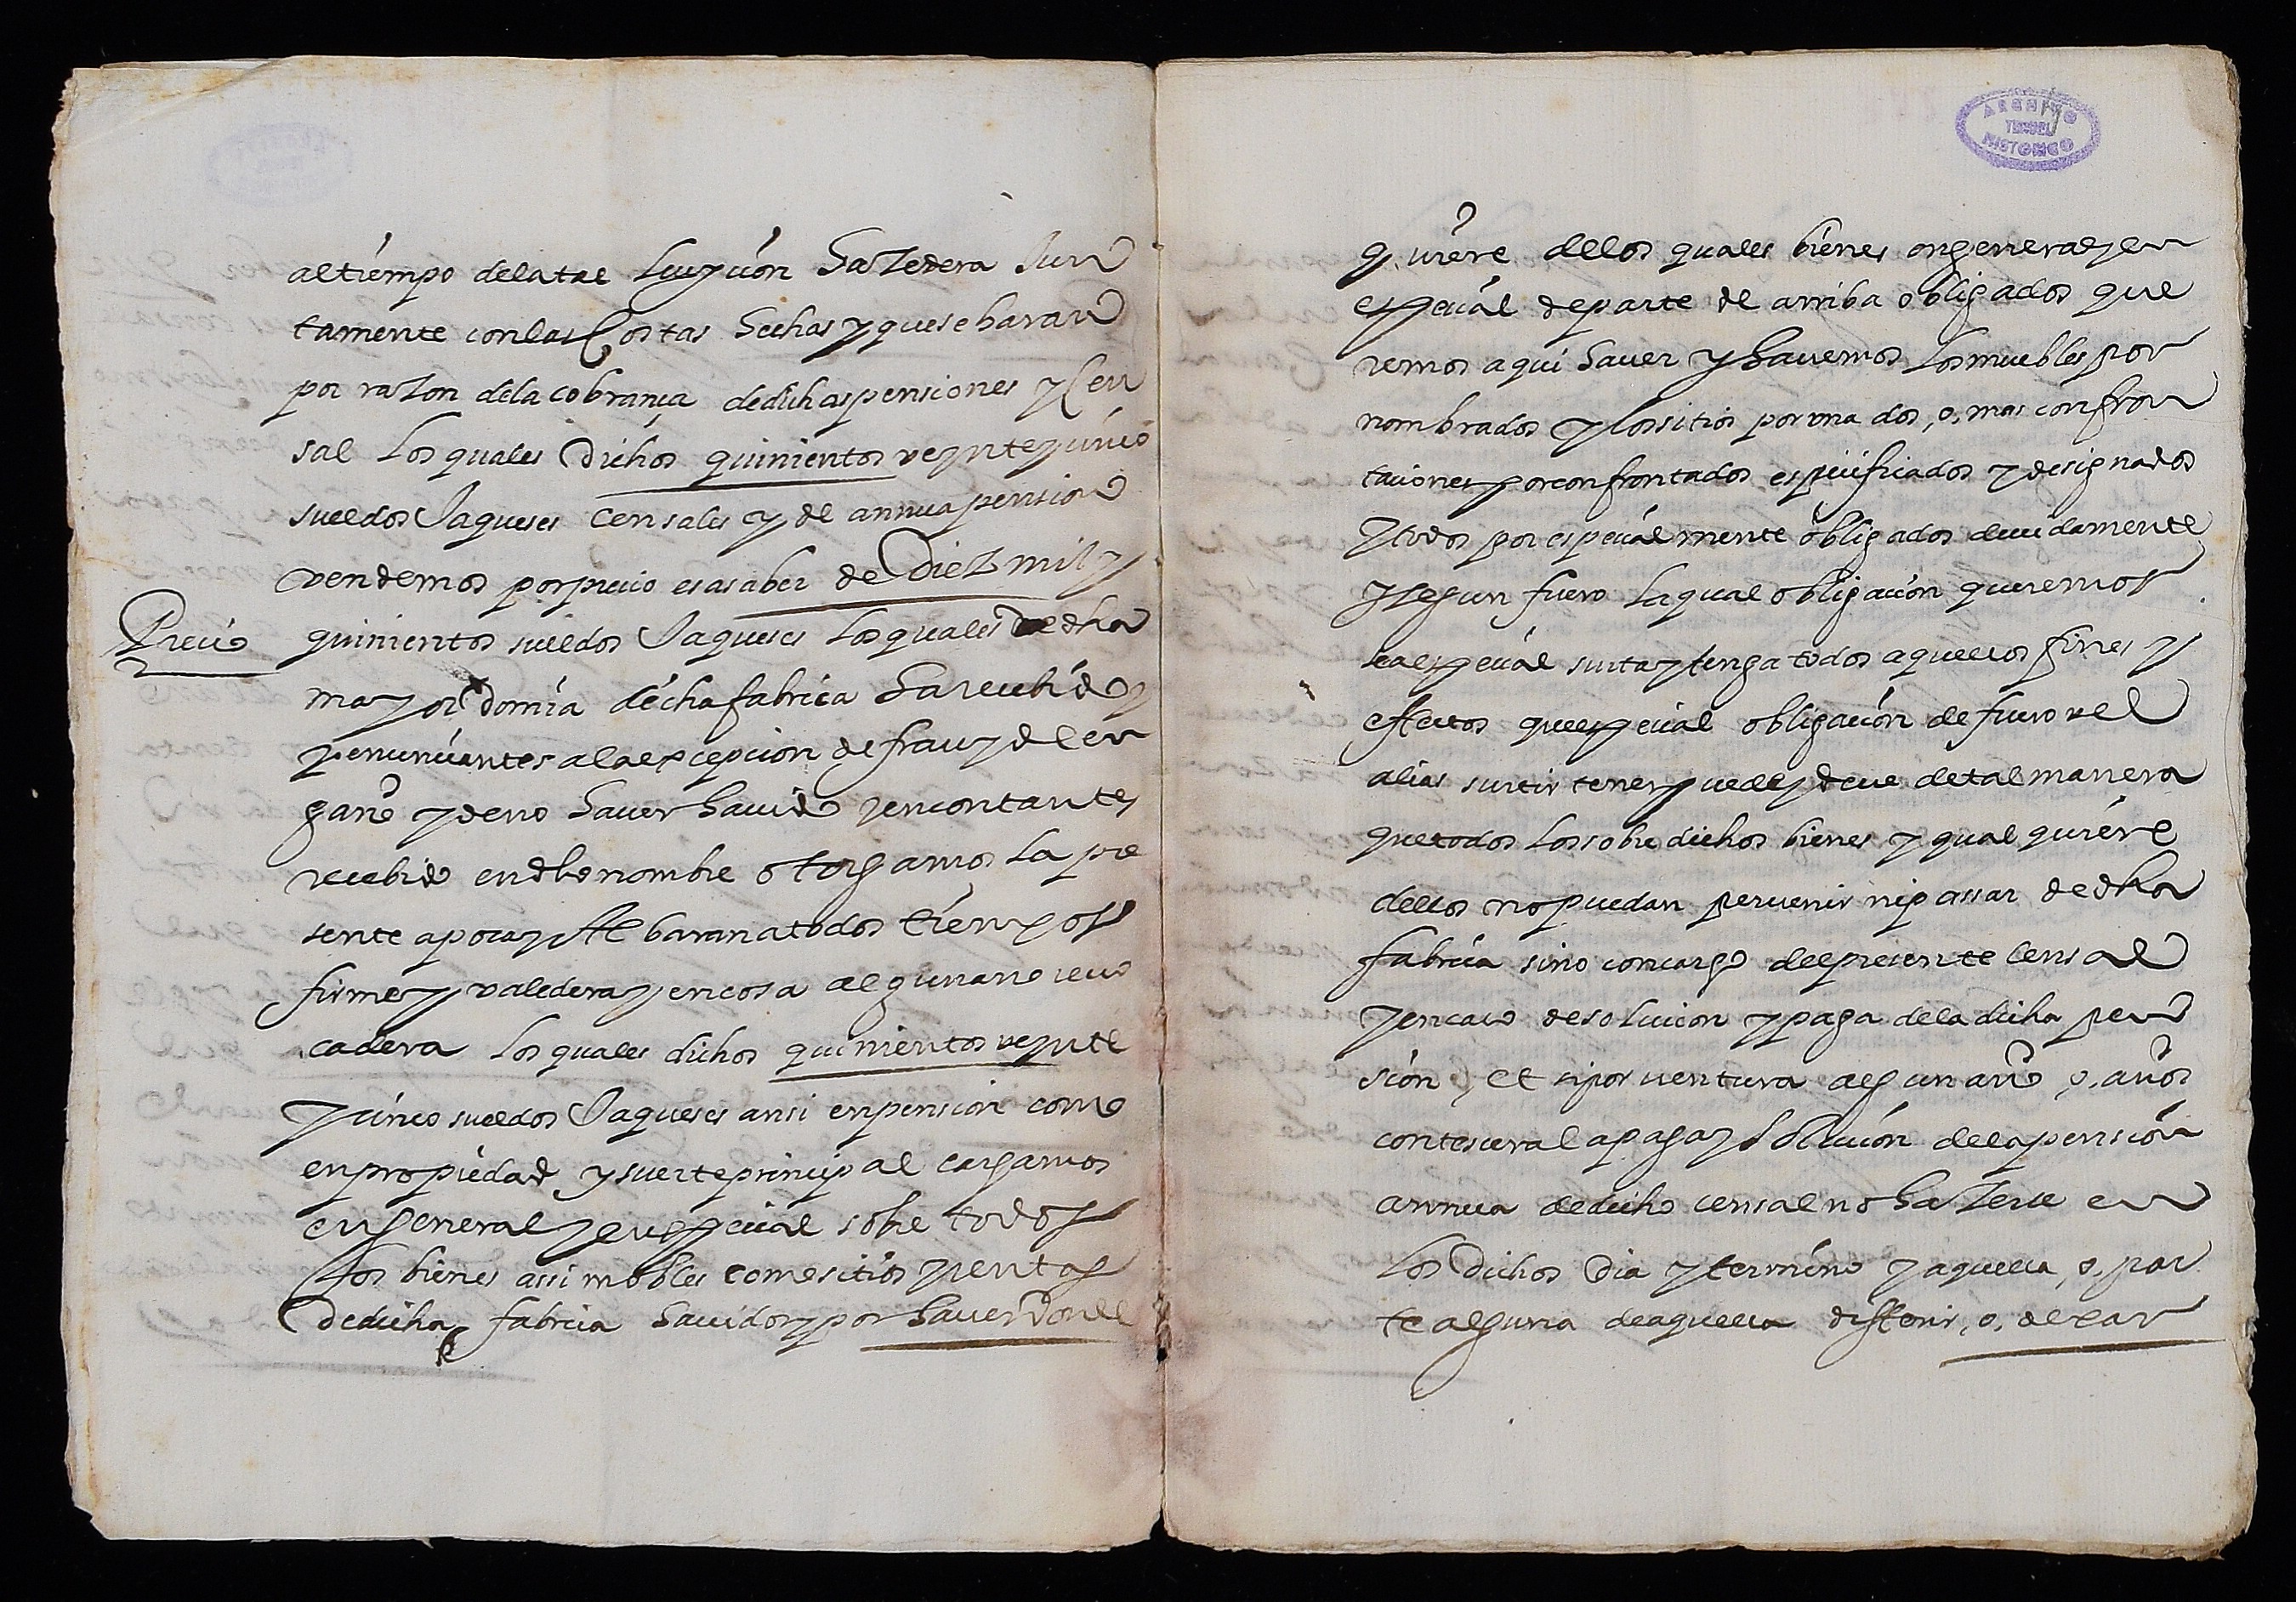 al tiempo de la tal luycion hazedera Jun
tamente con las Costas hechas y que se haran
por razon de la cobrança de dichas pensiones y Cen
sal los quales Dichos quinientos veynte y cinco
sueldos Jaqueses Censales y de annua pension
vendemos por precio es a saber de Diez mil y
Precio
quinientos sueldos Jaqueses los quales de dha
mayordomia de cha fabrica ha recibido y
renunciantes a la excepcion de frau y de en
gaño y de no hauer hauido y en contantes
recebido en dho nombre otorgamos la pre
sente apoca y Albaran a todos tiempos
firme y valedera y en cosa alguna no reuo
cadera los quales dichos quinientos veynte
y cinco sueldos Jaqueses ansi en pension como
en propiedad y suerte principal cargamos
en general y en especial sobre todos
los bienes assi mobles como sitios y rentas
De dicha fabrica hauidos y por hauer Donde
quiere de los quales bienes en general y en
especial de parte de arriba obligados que
remos aqui hauer y hauemos los muebles por
nombrados y los sitios por vna dos, o, mas confron
taciones por confrontados especificados y designados
y todos por especialmente obligados deuidamente
y segun fuero la qual obligacion queremos
sea special surta y tenga todos aquellos fines y
effectos que special obligacion de fuero vel
alias surtir tener puede y deue de tal manera
que todos los sobre dichos bienes y qual quiere
dellos no puedan peruenir ni passar de dha
fabrica sino con cargo del presente censal
y en caso de solucion y paga de la dicha pen
sion, et si por ventura algun año, o, años
contescera la paga y solucion de la pension
annua de dicho censal no hazerse en
los Dichos Dia y termino y aquella, o, par
te alguna de aquella differir, o, dexar
ARCHIVO
TERUEL
HISTORICO